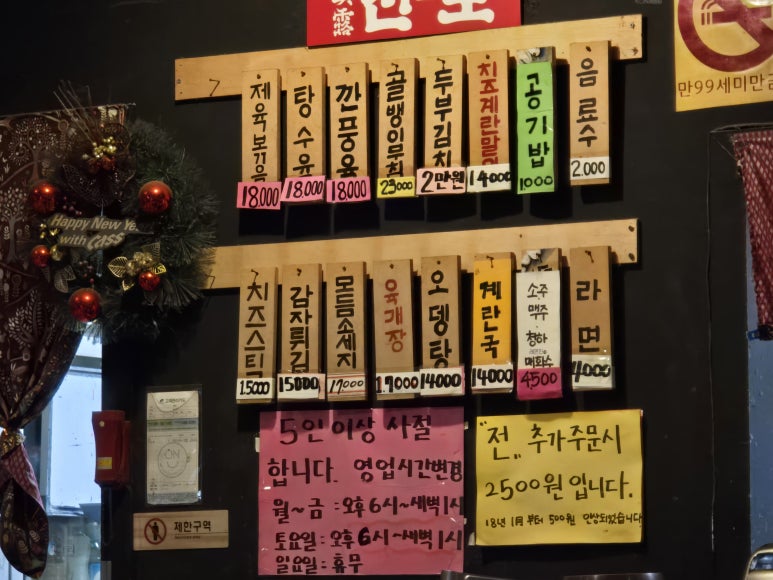 한모
만99세미만
제육볶음 18.000
탕수육 18.000
깐풍육 18.000
골뱅이무침 23000
두부김치 2만원
치즈계란말이 14000
공기밥 1000
음료수 2.000
Happy New Ye
with CASS
치즈스틱 15000
감자튀김 15000
모듬소세지 17000
육개장 17000
오뎅탕 14000
계란국 14000
소주 맥주 청하 매화수 4,500
라면 4000
5인 이상 사절
합니다. 영업시간변경
월~금 : 오후 6시~새벽 1시
토요일 : 오후 6시~새벽 1시
일요일 : 휴무
"전" 추가주문시
2500원 입니다.
18년 1月부터 500원 인상되었습니다
ON
제한구역